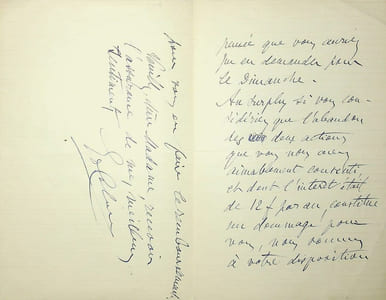 pensée que vous auriez
pu en demander pour
le Dimanche.
Au surplus si vous con-
sidérez que l'abandon
des deux actions
que vous nous avez
aimablement consenti,
et dont l'intérêt était
de 12 f par an, constitue
un dommage pour
vous, nous sommes
à votre disposition
pour vous en faire le remboursement.
Veuillez, chère Madame, recevoir
l'assurance de mes meilleurs
sentiments